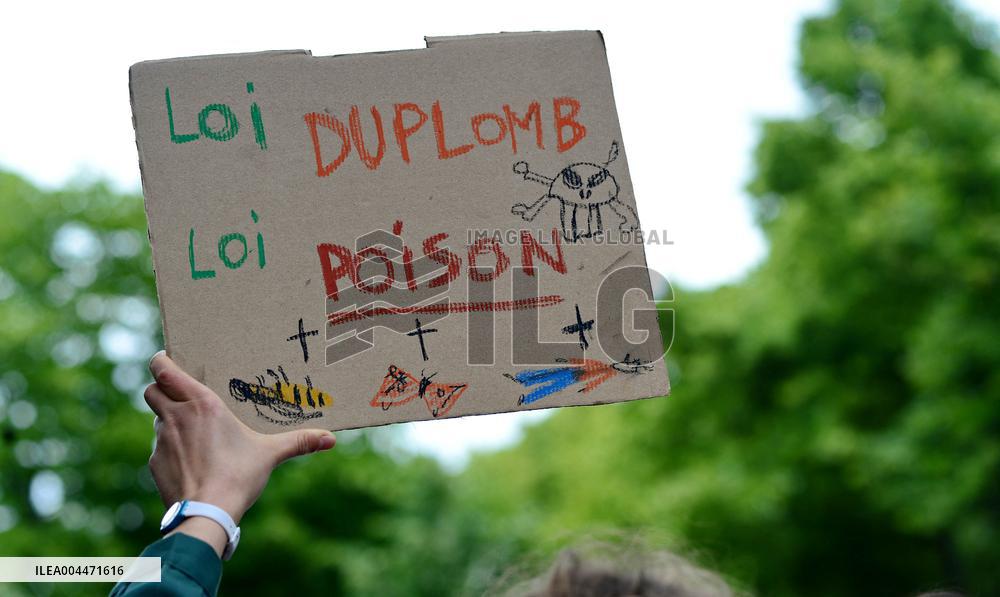 Loi DUPLOMB
Loi POISON
IMAGE LINK GLOBAL
ILG
ILEA004471616